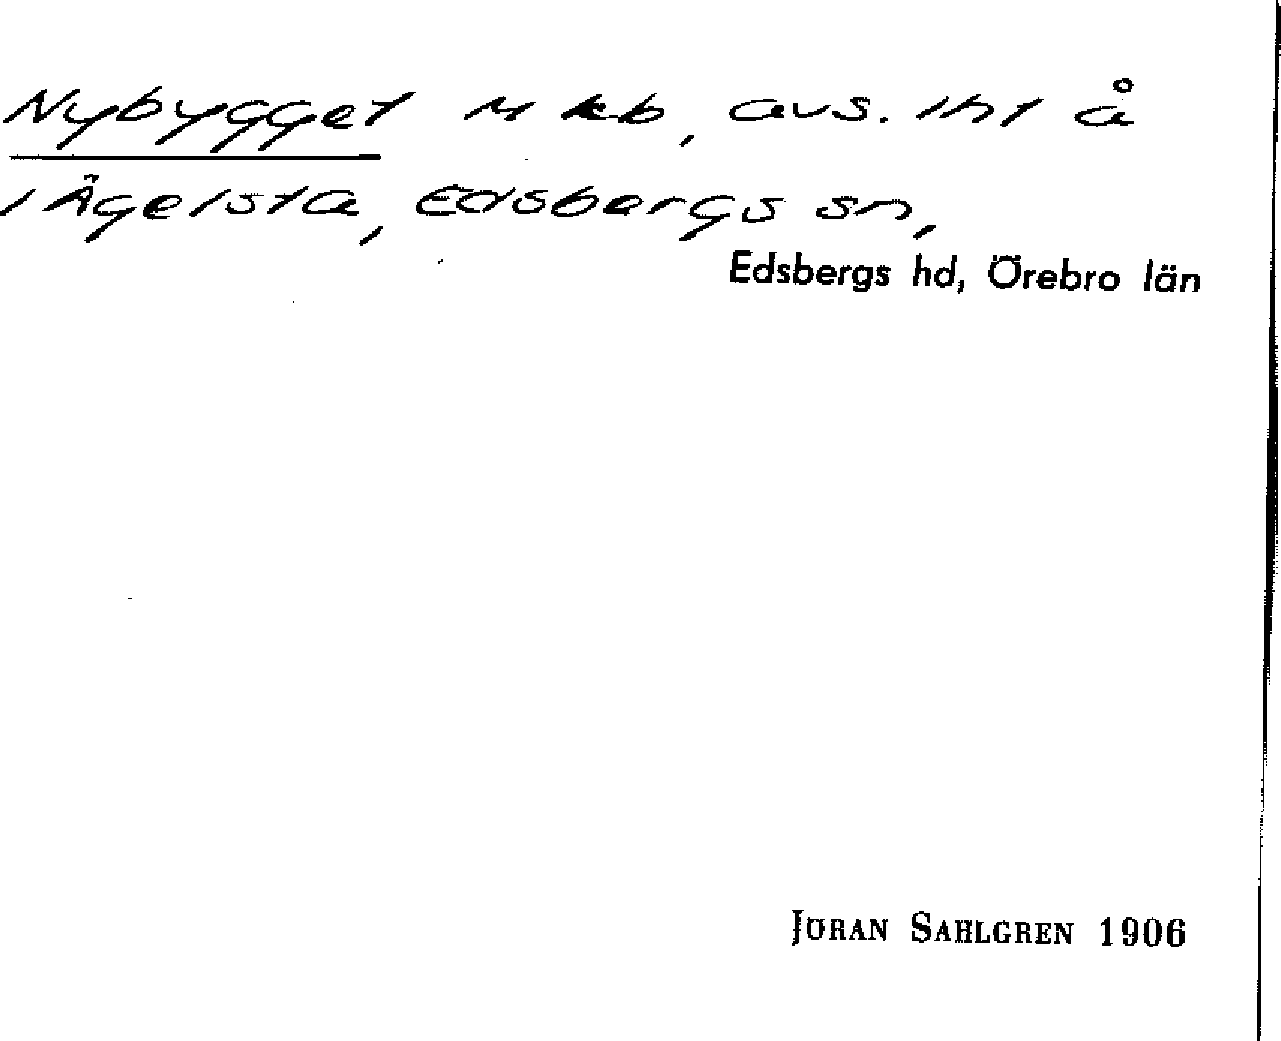 Nybygget M kb, avs. lht å
1 Ägelsta, Edsbergs sn,
Edsbergs hd, Örebro län
JÖRAN SAHLGREN 1906